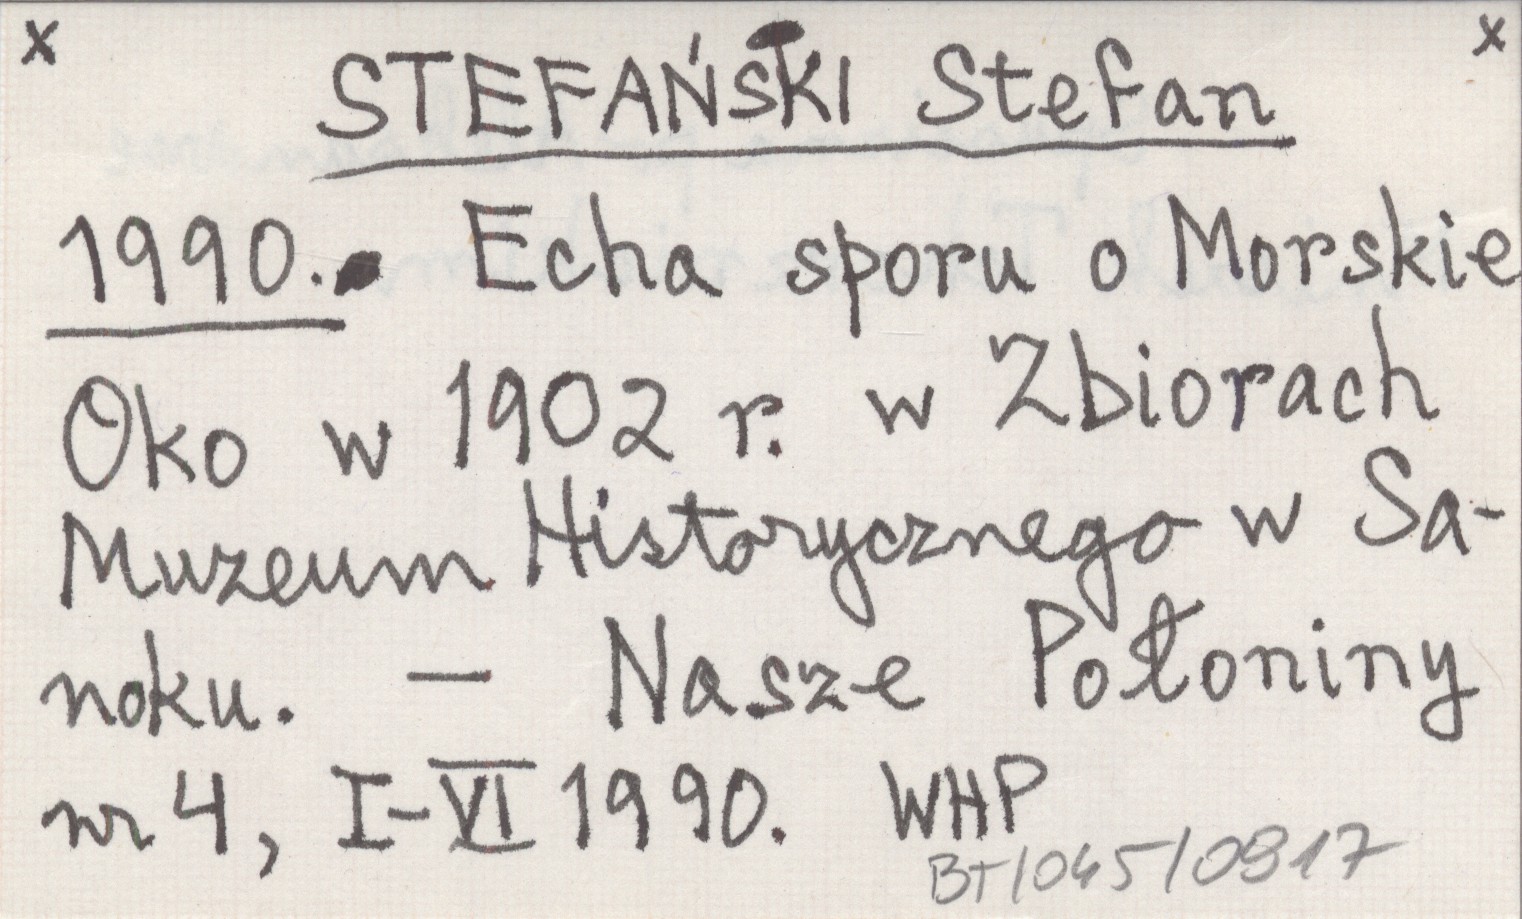 x x
STEFAŃSKI Stefan
1990. Echa sporu o Morskie
Oko w 1902 r. w Zbiorach
Muzeum Historycznego w Sa-
noku. — Nasze Połoniny
nr 4, I-VI 1990. WHP
BT/045/0917